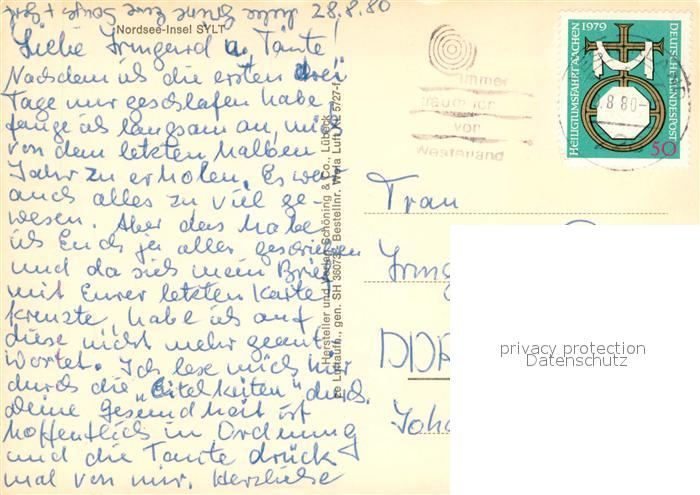 28.8.80
Nordsee-Insel SYLT
Liebe Irmgard u. Tante!
Nachdem ich die ersten drei
Tage nur geschlafen habe,
fange ich langsam an, mich
von dem letzten halben
Jahr zu erholen. Es war
auch alles zu viel ge-
wesen. Aber das habe
ich Euch ja alles geschrieben
und da sich mein Brief
mit Eurer letzten Karte
kreuzte, habe ich auf
diese nicht mehr geant-
wortet. Ich lese mich hier
durch die „Eitelkeiten" durch.
Deine Gesundheit ist
hoffentlich in Ordnung
und die Tante drück
mal von mir. Herzliche
Hersteller und Verlag Schöning & Co., Lübeck
Luftaufn., gen. SH 360/3 Bestellnr. Wela Luft Nr. 5727-1
immer
träum ich
von
Westerland
HEILIGTUMSFAHRT AACHEN 1979
DEUTSCHE BUNDESPOST
50
8.80
Frau
Irmg
DDR
Joha
privacy protection
Datenschutz